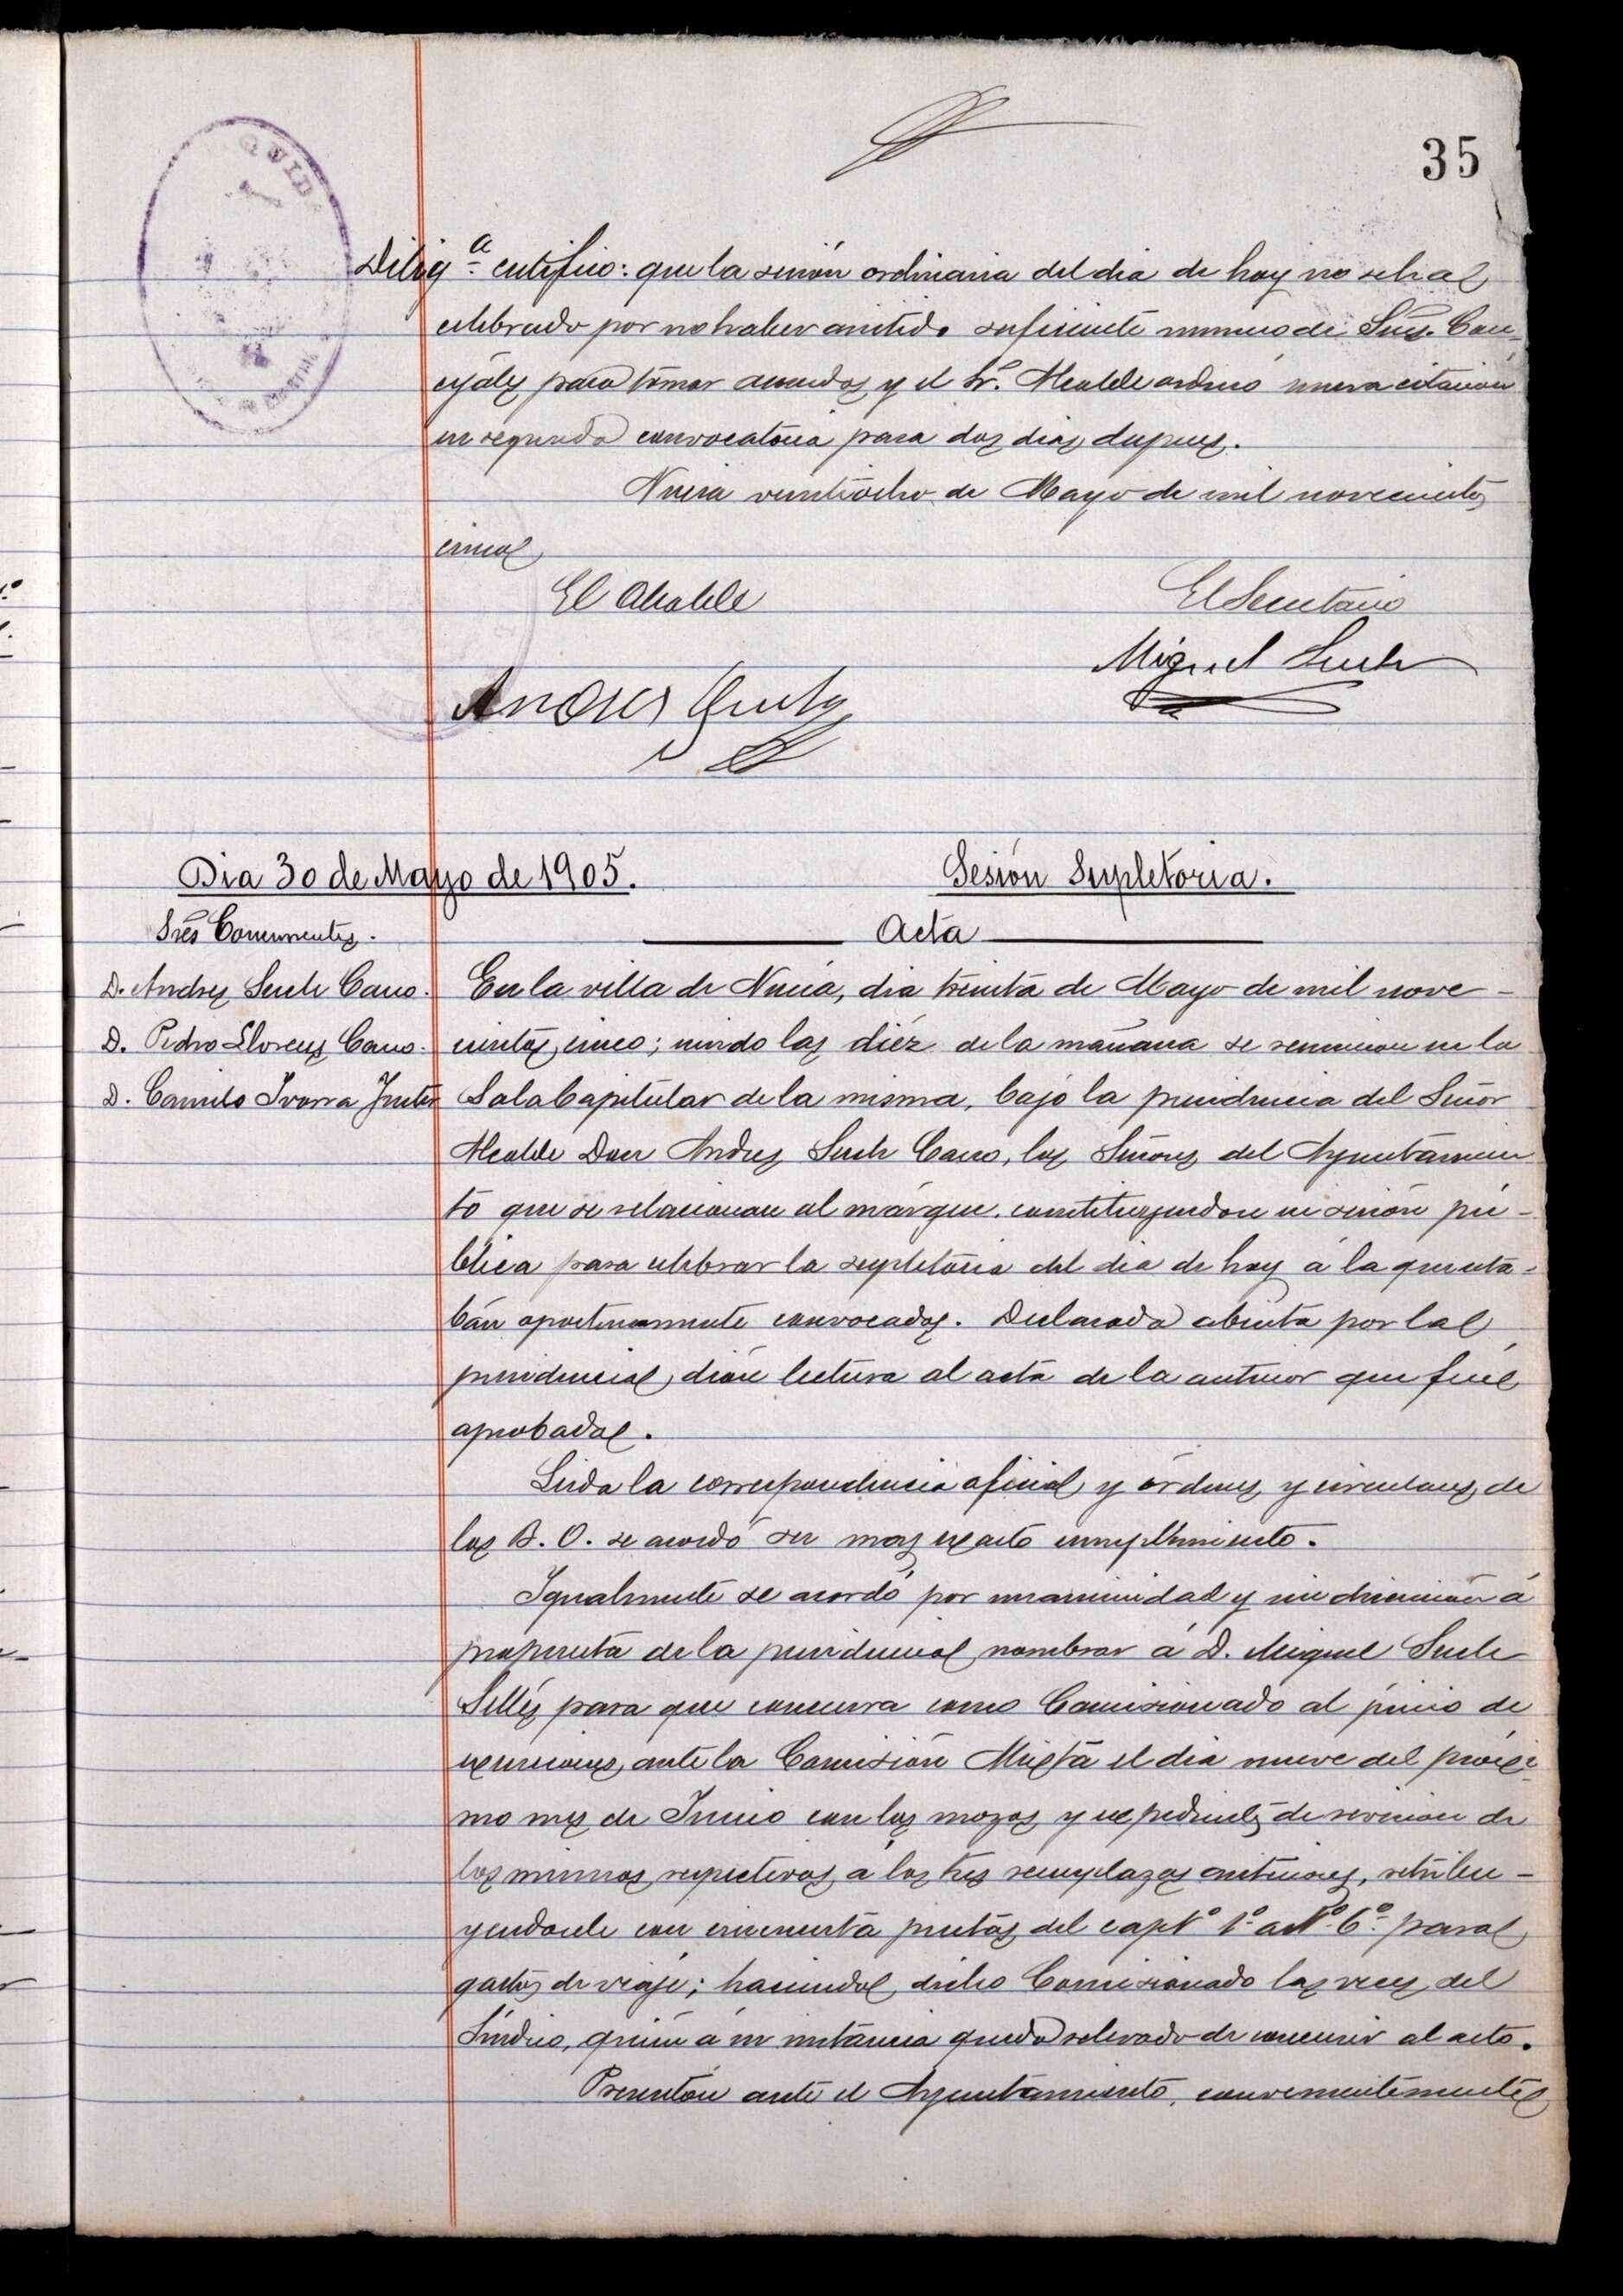 35
Dilig.ª certifico: que la sesión ordinaria del dia de hoy no se ha
celebrado por no haber asistido suficiente numero de Sres. Con-
cejales para tomar acuerdos y el Sr. Alcalde ordenó nueva citación
en segunda convocatoria para dos dias despues.
Nucia veintiocho de Mayo de mil novecientos
cinco
El Alcalde
El Secretario
Miguel Such
Andres Such
Dia 30 de Mayo de 1905.
Sesión Supletoria.
Sres Concurrentes.
Acta
D. Andres Such Cano.
D. Pedro Llorens Cano.
D. Camilo Ivorra Fuster
En la villa de Nucia, dia treinta de Mayo de mil nove-
cientos cinco; siendo las diéz de la mañana se reunieron en la
Sala Capitular de la misma, bajo la presidencia del Señor
Alcalde Don Andres Such Cano, los Señores del Ayuntamien
to que se relacionan al márgen, constituyendose en sesión pú-
blica para celebrar la supletoria del dia de hoy á la que esta-
bán oportunamente convocados. Declarada abierta por la
presidencia, dióse lectura al acta de la anterior que fué
aprobada.
Leida la correspondencia oficial y órdenes y circulares de
los B. O. se acordó su mas exacto cumplimiento.
Igualmente se acordó por unanimidad y sin discusión á
propuesta de la presidencia nombrar á D. Miguel Such
Sellés para que concurra como Comisionado al juicio de
exenciones ante la Comisión Mixta el dia nueve del próxi-
mo mes de Junio con los mozos y expedientes de revision de
los mismos respectivos á los tres reemplazos anteriores, retribu-
yendosele con cincuenta pesetas del capº 1º artº 6º para
gastos de viaje; haciendo dicho Comisionado las veces del
Síndico, quién á su instancia queda relevado de concurrir al acto.
Presentóse ante el Ayuntamiento, convenientemente